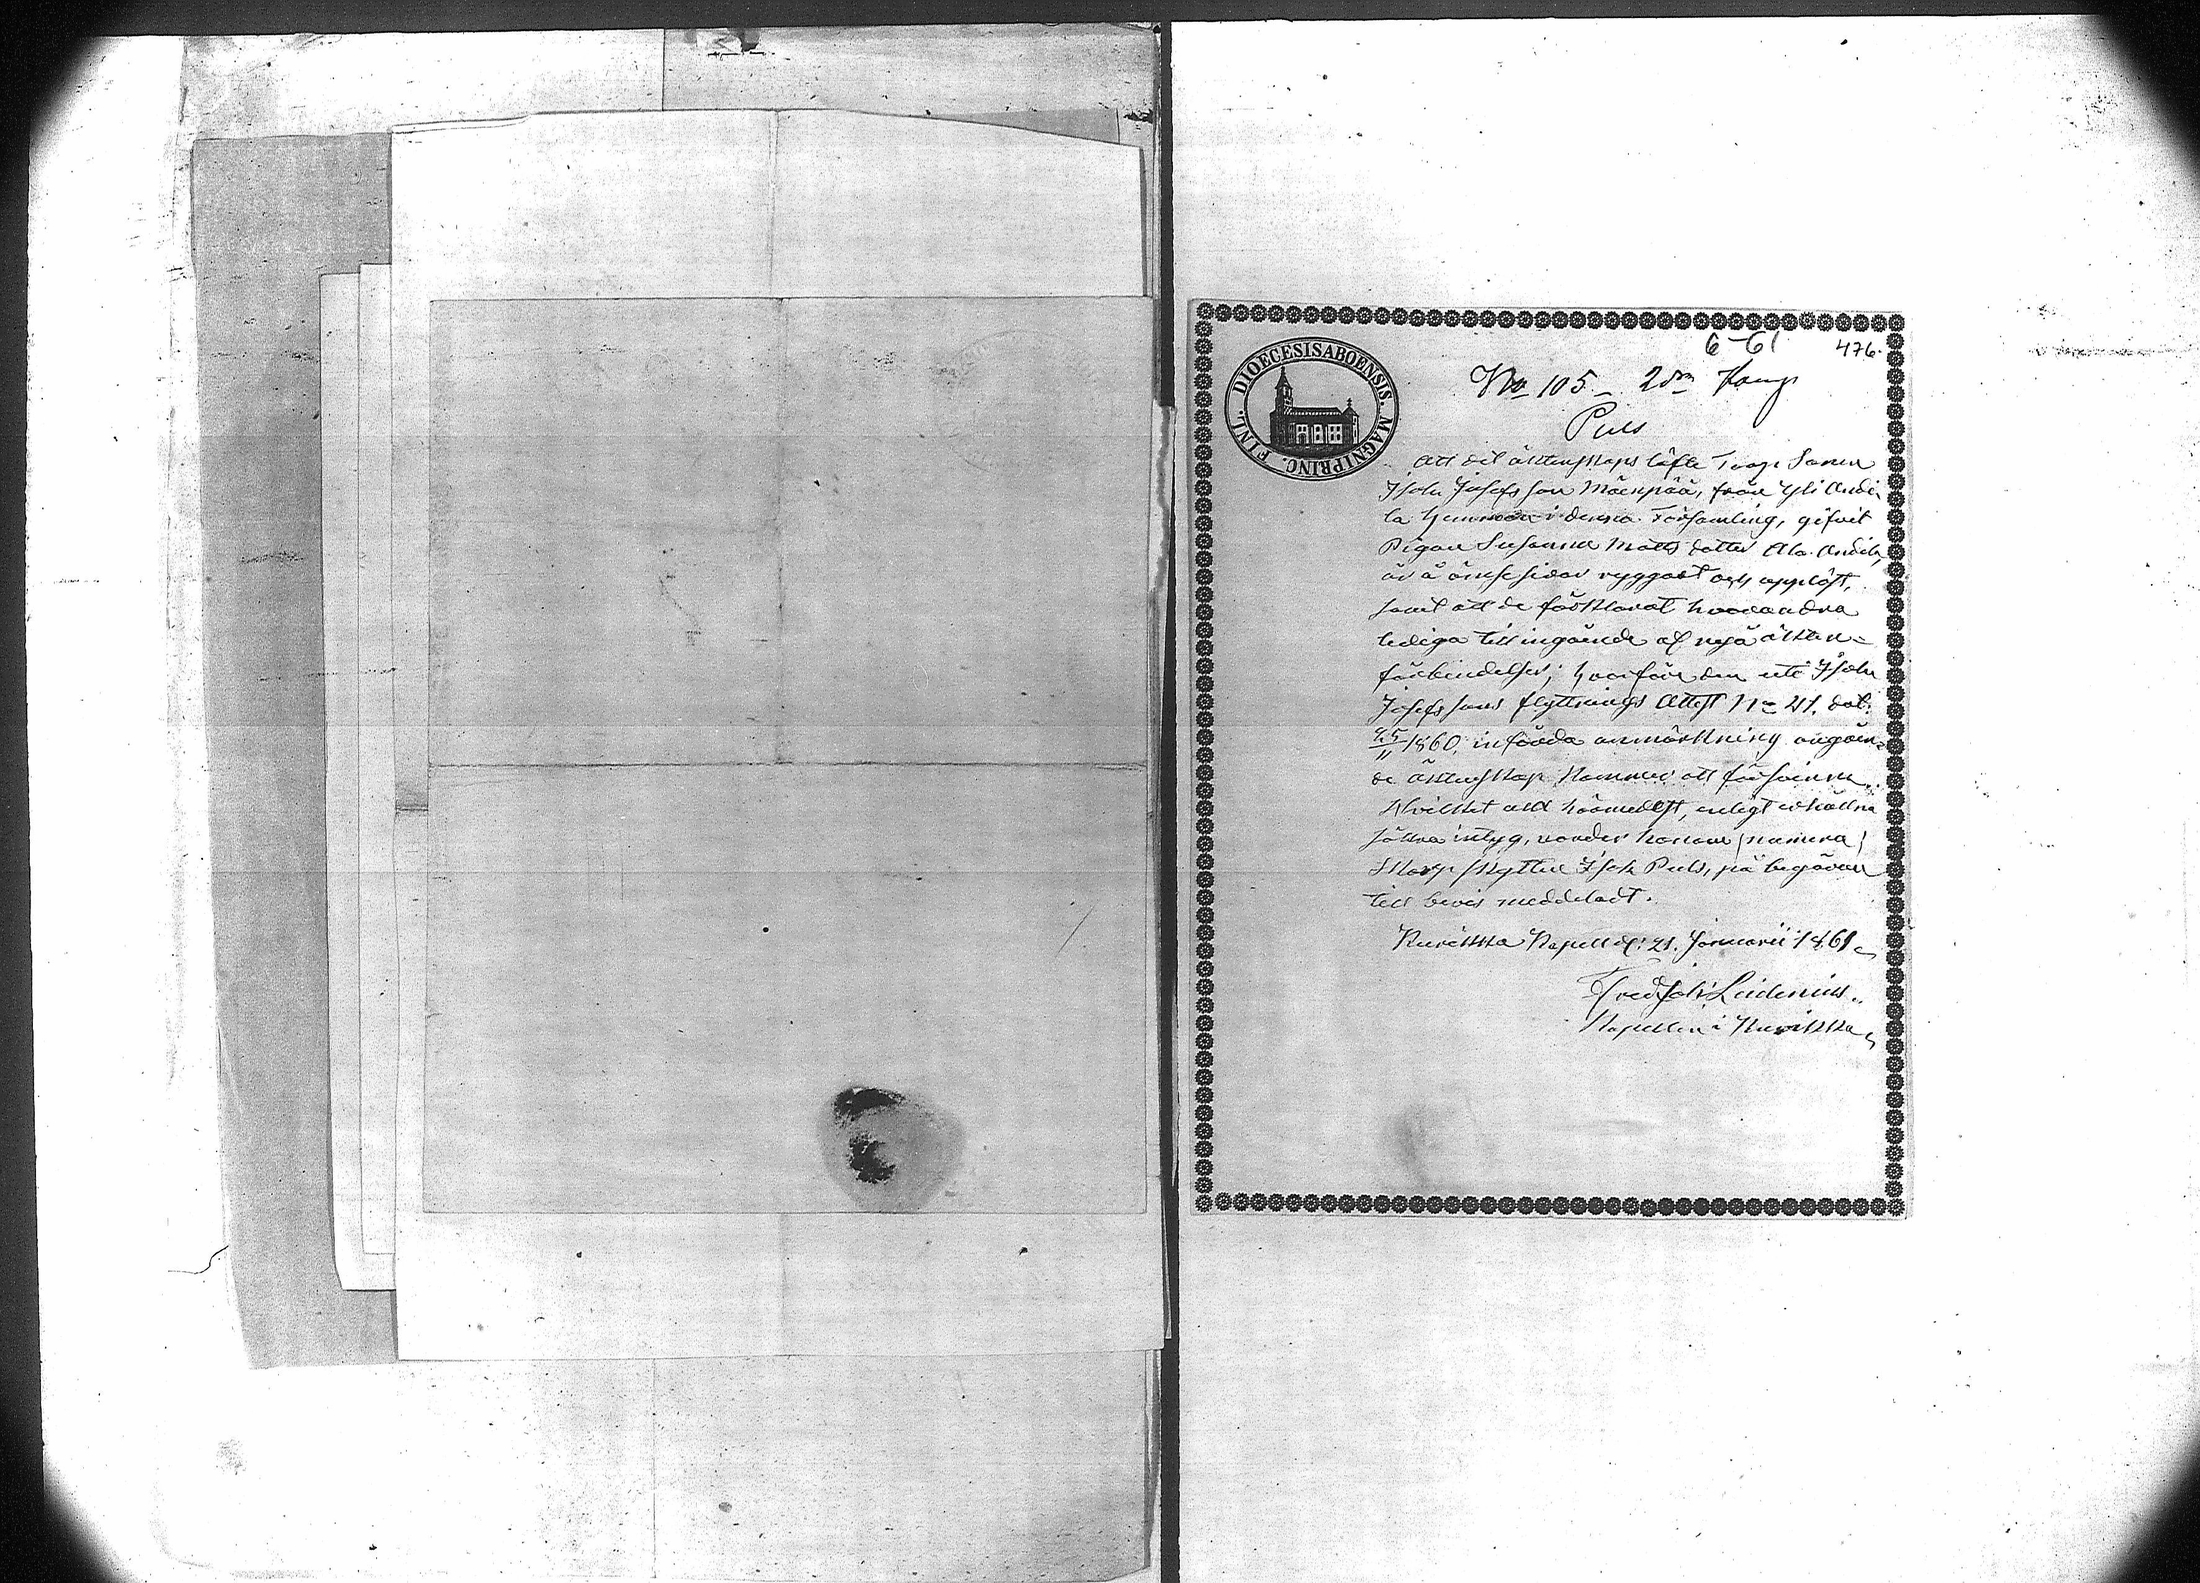 6-61
476.
DIOECESISABOENSIS. MAGNIPRINC. FINL.
No 105 - 2dra Komp
Puls
Att det äktenskaps löfte Torp Sonen
Isak Josefsson Mäenpää, från Yli Andi
la hemman i denna Församling, gifvit
Pigan Susanna Matts dotter Ala Andila,
är å ömse sidor ryggadt och upplöst,
samt att de förklarat hvarandra
lediga till ingående af nya äkten-
förbindelser; hvarföre den uti Isak
Josefssons flyttnings Attest No 41. dat:
25/11 1860, införda anmärkning angåen-
de äktenskap kommer att försvinna.
Hvilket allt härmedelst, enligt erhållna
säkra intyg, varder honom (numera)
Skarpskytten Isak Puls, på begäran
till bevis meddeladt.
Kuvikkka Kapell d: 21. Januarii 1861.
Fred: Leidenius.
Kapellan i